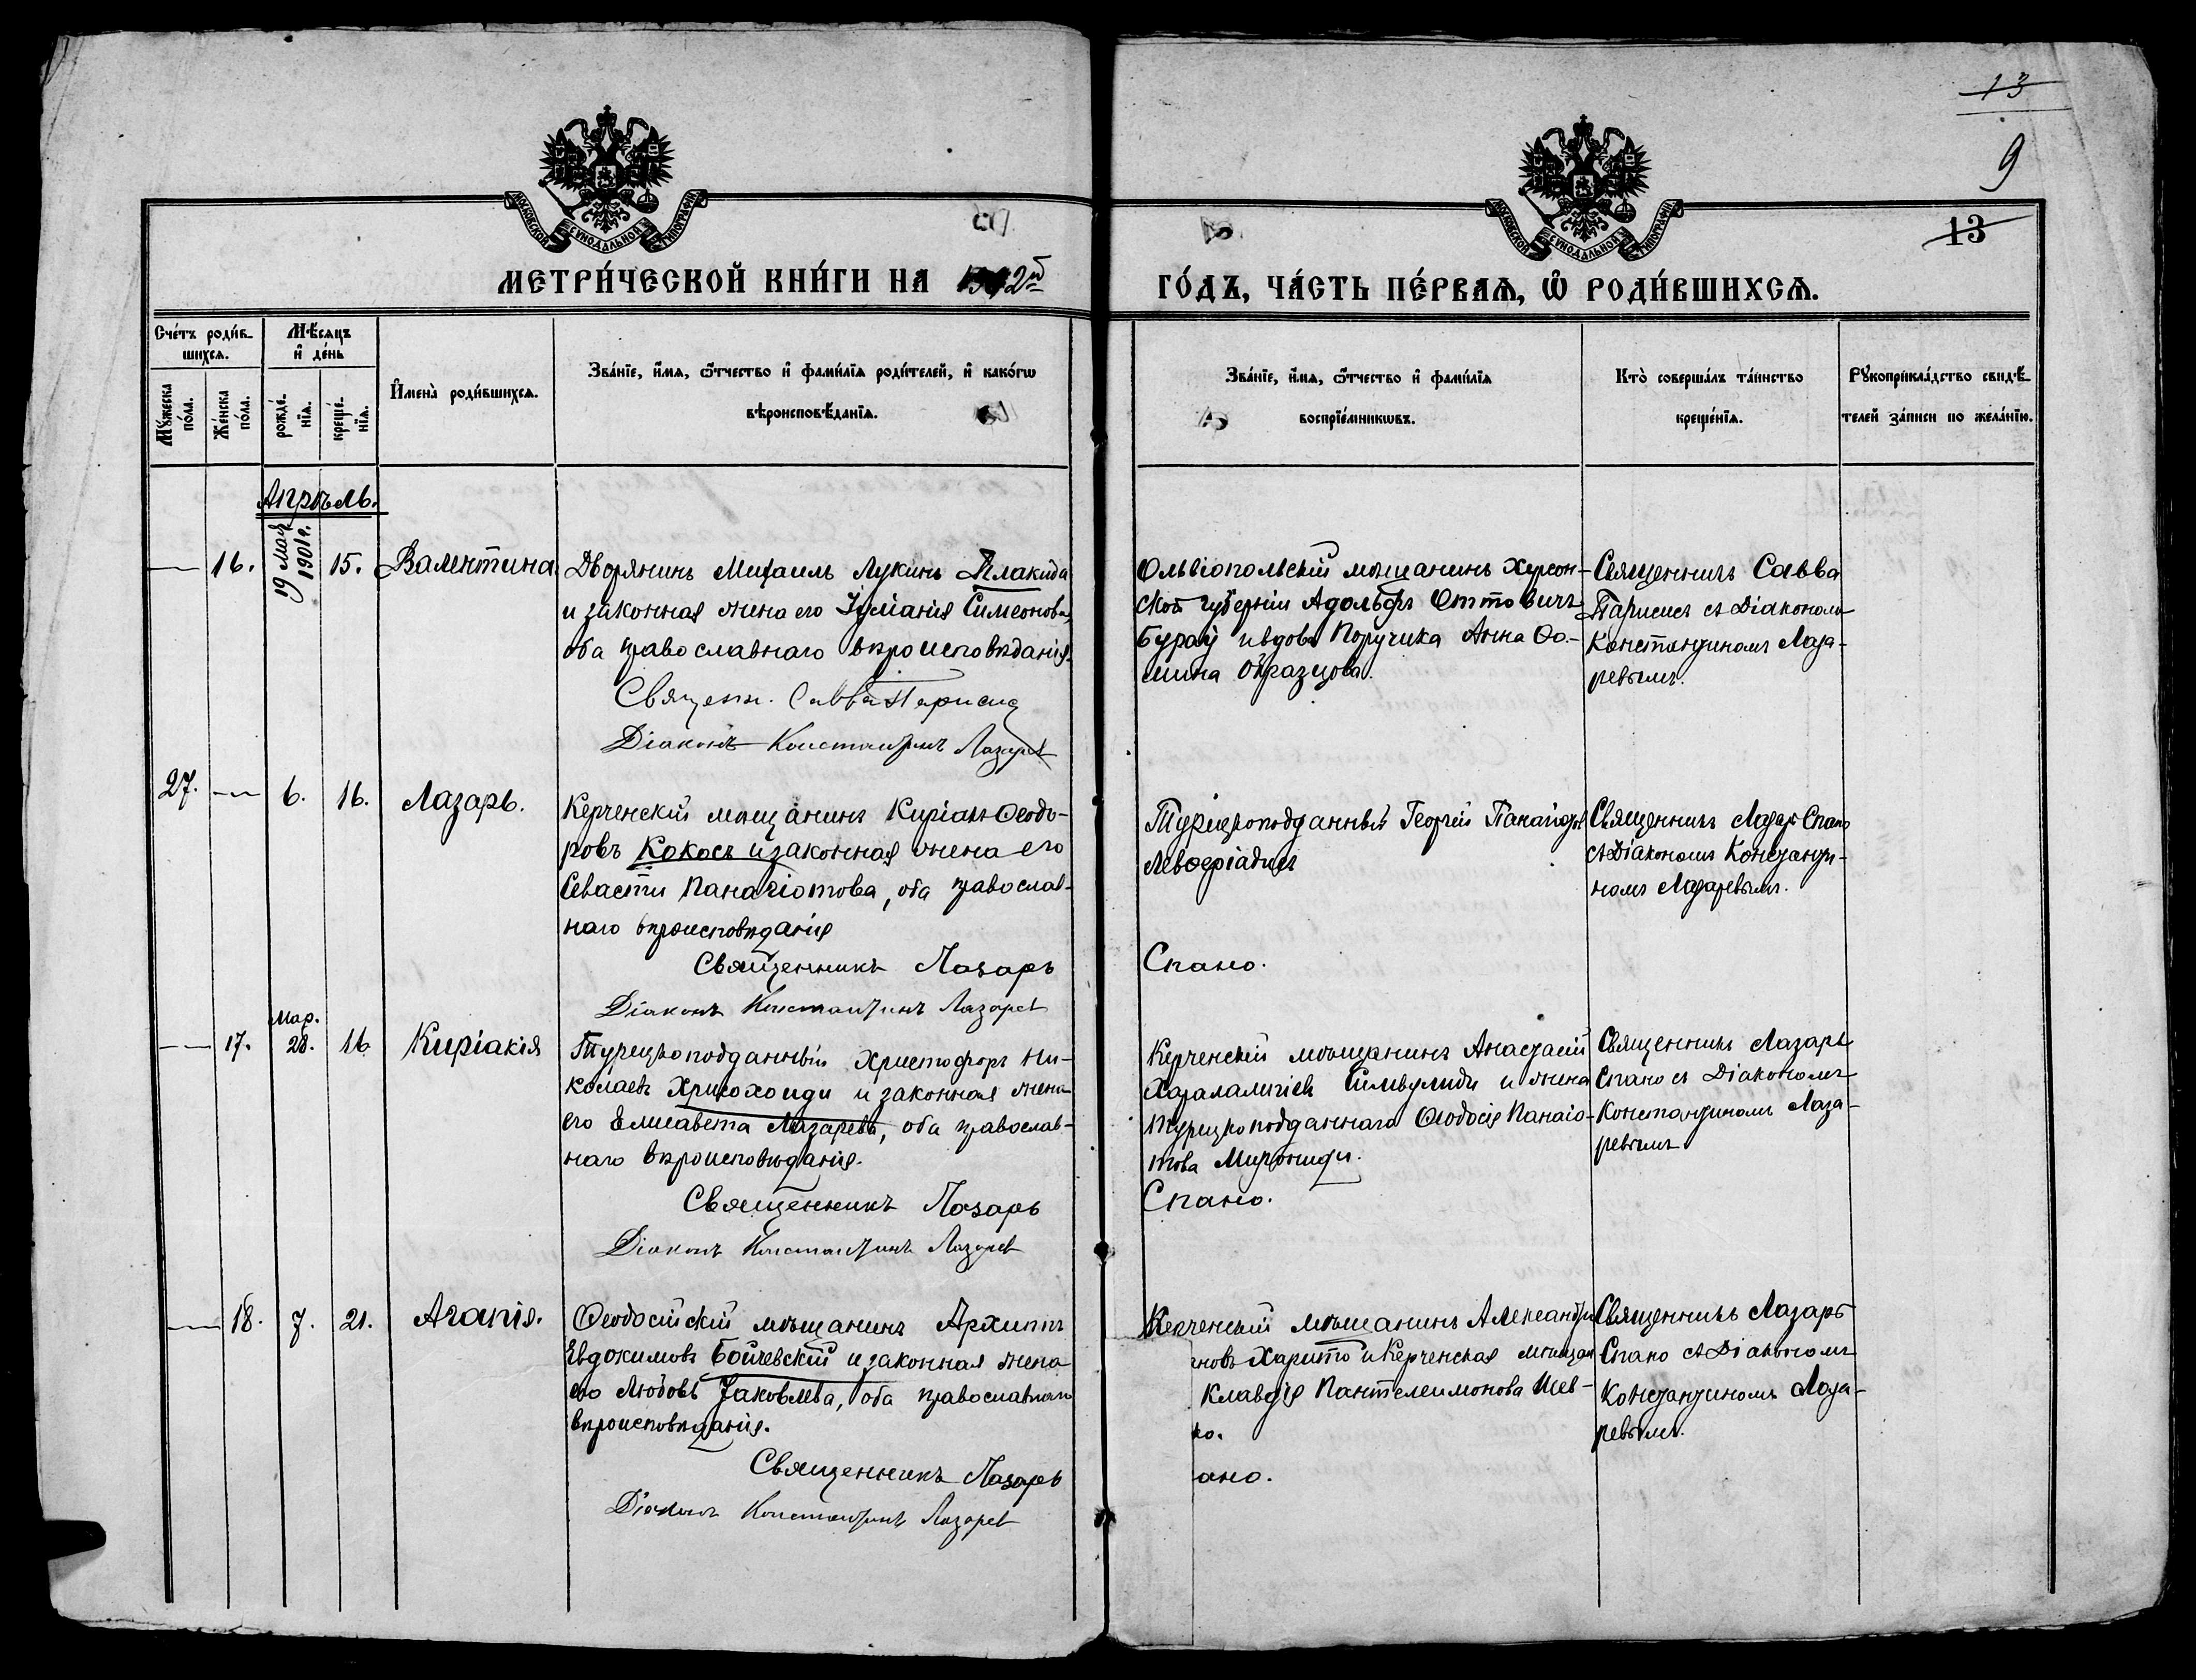 13
9
МОСКОВСКОЙ СѴНОДАЛЬНОЙ ТИПОГРАФІИ
МОСКОВСКОЙ СѴНОДАЛЬНОЙ ТИПОГРАФІИ
13
МЕТРИ́ЧЕСКОЙ КНИ́ГИ НА 1902й
ГО́ДЪ, ЧА́СТЬ ПЕ́РВАѦ, Ѡ҆ РОДИ́ВШИХСѦ.
Сче́тъ роди́в-
шихсѧ.
Мꙋ́жеска по́ла.
Же́нска по́ла.
Мѣ́сяцъ
и҆ де́нь
рожде́-
нїѧ.
креще́-
нїѧ.
И҆мена̀ роди́вшихсѧ.
Зва́нїе, и҆́мѧ, ѻ҆́тчество и҆ фами́лїѧ роди́телей, и҆ како́гѡ
вѣроисповѣ́данїѧ.
Зва́нїе, и҆́мѧ, ѻ҆́тчество и҆ фами́лїѧ
воспрїе́мникѡвъ.
Кто̀ соверша́лъ та́инство
креще́нїѧ.
Рꙋкоприкла́дство свидѣ́-
телей за́писи по жела́нїю.
Апрѣль.
16.
19 мая
1901 г.
15.
Валентина
Дворянинъ Михаилъ Лукинъ Плакида
и законная жена его Іуліанія Симеонова,
оба православнаго вѣроисповѣданія.
Священ. Савва Парисид
Діаконъ Константинъ Лазарев
Ольвіопольскій мѣщанинъ Херсон-
ской губерніи Адольфъ Оттовичъ
и вдова Поручика Анна Ѳо-
мина Образцова.
Священникъ Савва
съ Діакономъ
Константиномъ Лаза-
ревымъ.
27.
6.
16.
Лазарь.
Керченскій мѣщанинъ Киріакъ Ѳеодо-
ровъ Кокосъ и законная жена его
Севасти Панагіотова, оба православ-
наго вѣроисповѣданія
Священникъ Лазарь
Діаконъ Константинъ Лазарев
Турецкоподданный Георгій
Спано.
Священникъ Лазарь Спано
съ Діакономъ Константи-
номъ Лазаревымъ.
17.
Мар.
28.
16.
Киріакія
Турецкоподданный Христофоръ Ни-
колаевъ и законная жена
его Елисавета Лазарева, оба православ-
наго вѣроисповѣданія.
Священникъ Лазарь
Діаконъ Константинъ Лазарев
Керченскій мѣщанинъ Анастасій
Харалампіевъ и жена
турецкоподданнаго Ѳеодосія Панаіо-
това
Спано.
Священникъ Лазарь
Спано съ Діакономъ
Константиномъ Лаза-
ревымъ
18.
7.
21.
Агапія.
Ѳеодосійскій мѣщанинъ Архиппъ
Евдокимовъ Бойчевскій и законная жена
его Любовь Іаковлева, оба православнаго
вѣроисповѣданія.
Священникъ Лазарь
Діаконъ Константинъ Лазарев
Керченскій мѣщанинъ Александръ
новъ Харито и Керченская мѣщан
Клавдія Пантелеимонова Шев-
ко.
ано.
Священникъ Лазарь
Спано съ Діакономъ
Константиномъ Лаза-
ревымъ.